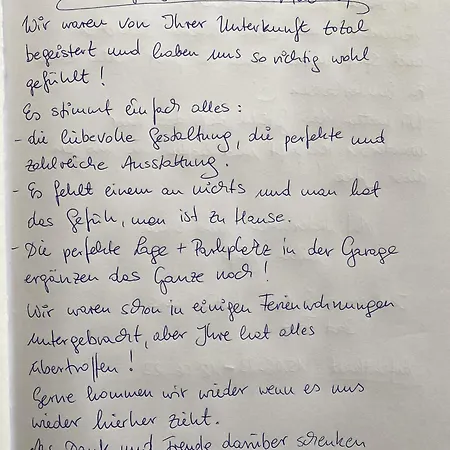 Wir waren von Ihrer Unterkunft total
begeistert und haben uns so richtig wohl
gefühlt!
Es stimmt einfach alles:
- die liebevolle Gestaltung, die perfekte und
zahlreiche Ausstattung.
- Es fehlt einem an nichts und man hat
das Gefühl, man ist zu Hause.
- Die perfekte Lage + Parkplatz in der Garage
ergänzen das Ganze noch!
Wir waren schon in einigen Ferienwohnungen
untergebracht, aber Ihre hat alles
übertroffen!
Gerne kommen wir wieder wenn es uns
wieder hierher zieht.
Als Dank und Freude darüber schenken